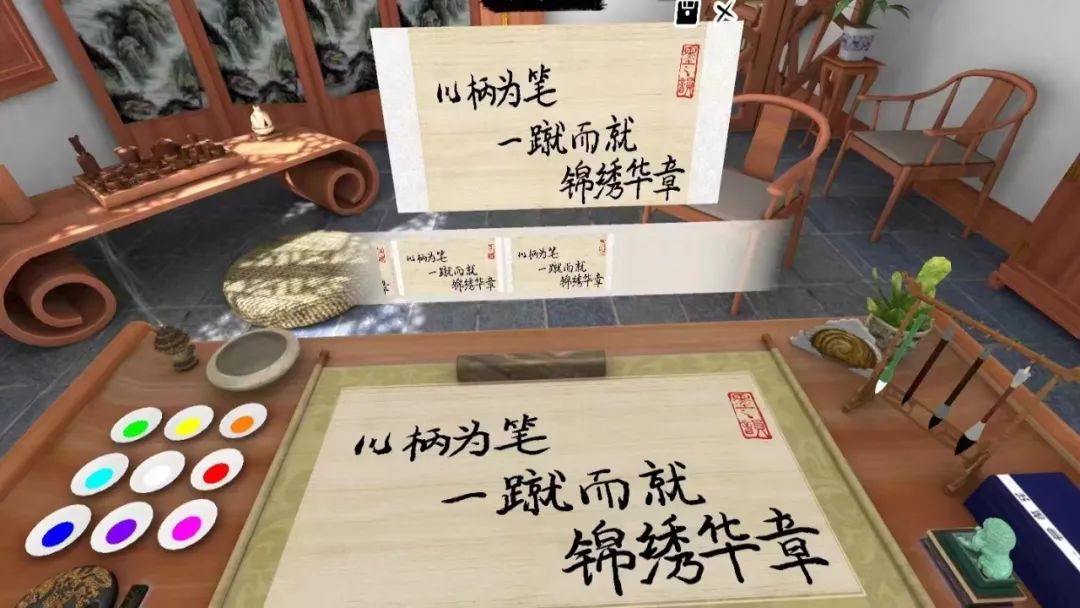 以柄为笔
一蹴而就
锦绣华章
墨之韻
以柄为笔
一蹴而就
锦绣华章
以柄为笔
一蹴而就
锦绣华章
以柄为笔
一蹴而就
锦绣华章
墨之韻